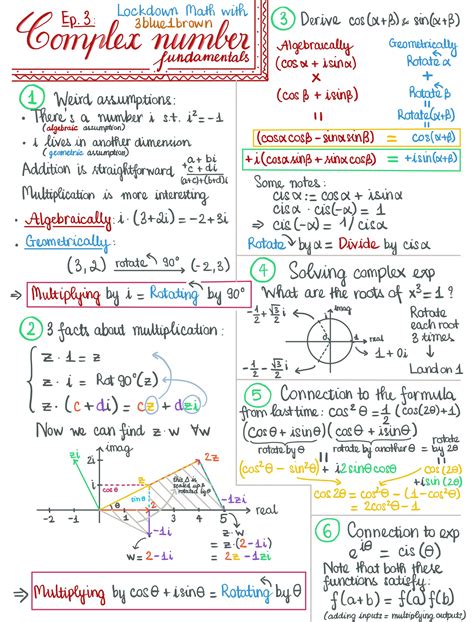 Ep. 3:
Lockdown Math with
3blue1brown
Complex number
fundamentals
① Weird assumptions:
• There's a number i s.t. i²=-1
(algebraic assumption)
• i lives in another dimension
(geometric assumption)
Addition is straightforward
a+bi
+c+di
(a+c)+(b+d)i
Multiplication is more interesting
• Algebraically: i·(3+2i)=-2+3i
• Geometrically:
(3,2) rotate 90° (-2,3)
⇒ Multiplying by i = Rotating by 90°
② 3 facts about multiplication:
z · 1 = z
z · i = Rot 90°(z)
z · (c+di) = cz + dzi
Now we can find z·w ∀w
imag
zi
2i
i
cosθ
sinθ
θ
this Δ is
scaled up &
rotated by θ
2z
-1zi
-2 -1 1 2 3 4 5 real
w=2-1i
z·w=
=z·(2-1i)
=2z-1zi
⇒ Multiplying by cosθ+isinθ = Rotating by θ
③ Derive cos(α+β) & sin(α+β)
Algebraically
(cosα+isinα)
×
(cosβ+isinβ)
=
(cosαcosβ-sinαsinβ) = cos(α+β)
+i(cosαsinβ+sinαcosβ) = +isin(α+β)
Geometrically
Rotate α
+
Rotate β
=
Rotate(α+β)
=
Some notes:
cisα := cosα + isinα
cisα · cis(-α) = 1
⇒ cis(-α) = 1/cisα
Rotate by α = Divide by cisα
④ Solving complex exp
What are the roots of x³=1?
-1/2+√3/2 i
imag
real
1+0i
-1/2-√3/2 i
Rotate
each root
3 times
Land on 1
⑤ Connection to the formula
from last time: cos²θ=1/2(cos(2θ)+1)
(cosθ+isinθ)(cosθ+isinθ)
rotate by θ rotate by another θ = rotate by 2θ
(cos²θ-sin²θ)+i2sinθcosθ = cos(2θ)
+isin(2θ)
cos2θ=cos²θ-(1-cos²θ)
=2cos²θ-1
⑥ Connection to exp
e^iθ = cis(θ)
Note that both these
functions satisfy:
f(a+b) = f(a)f(b)
(adding inputs = multiplying outputs)